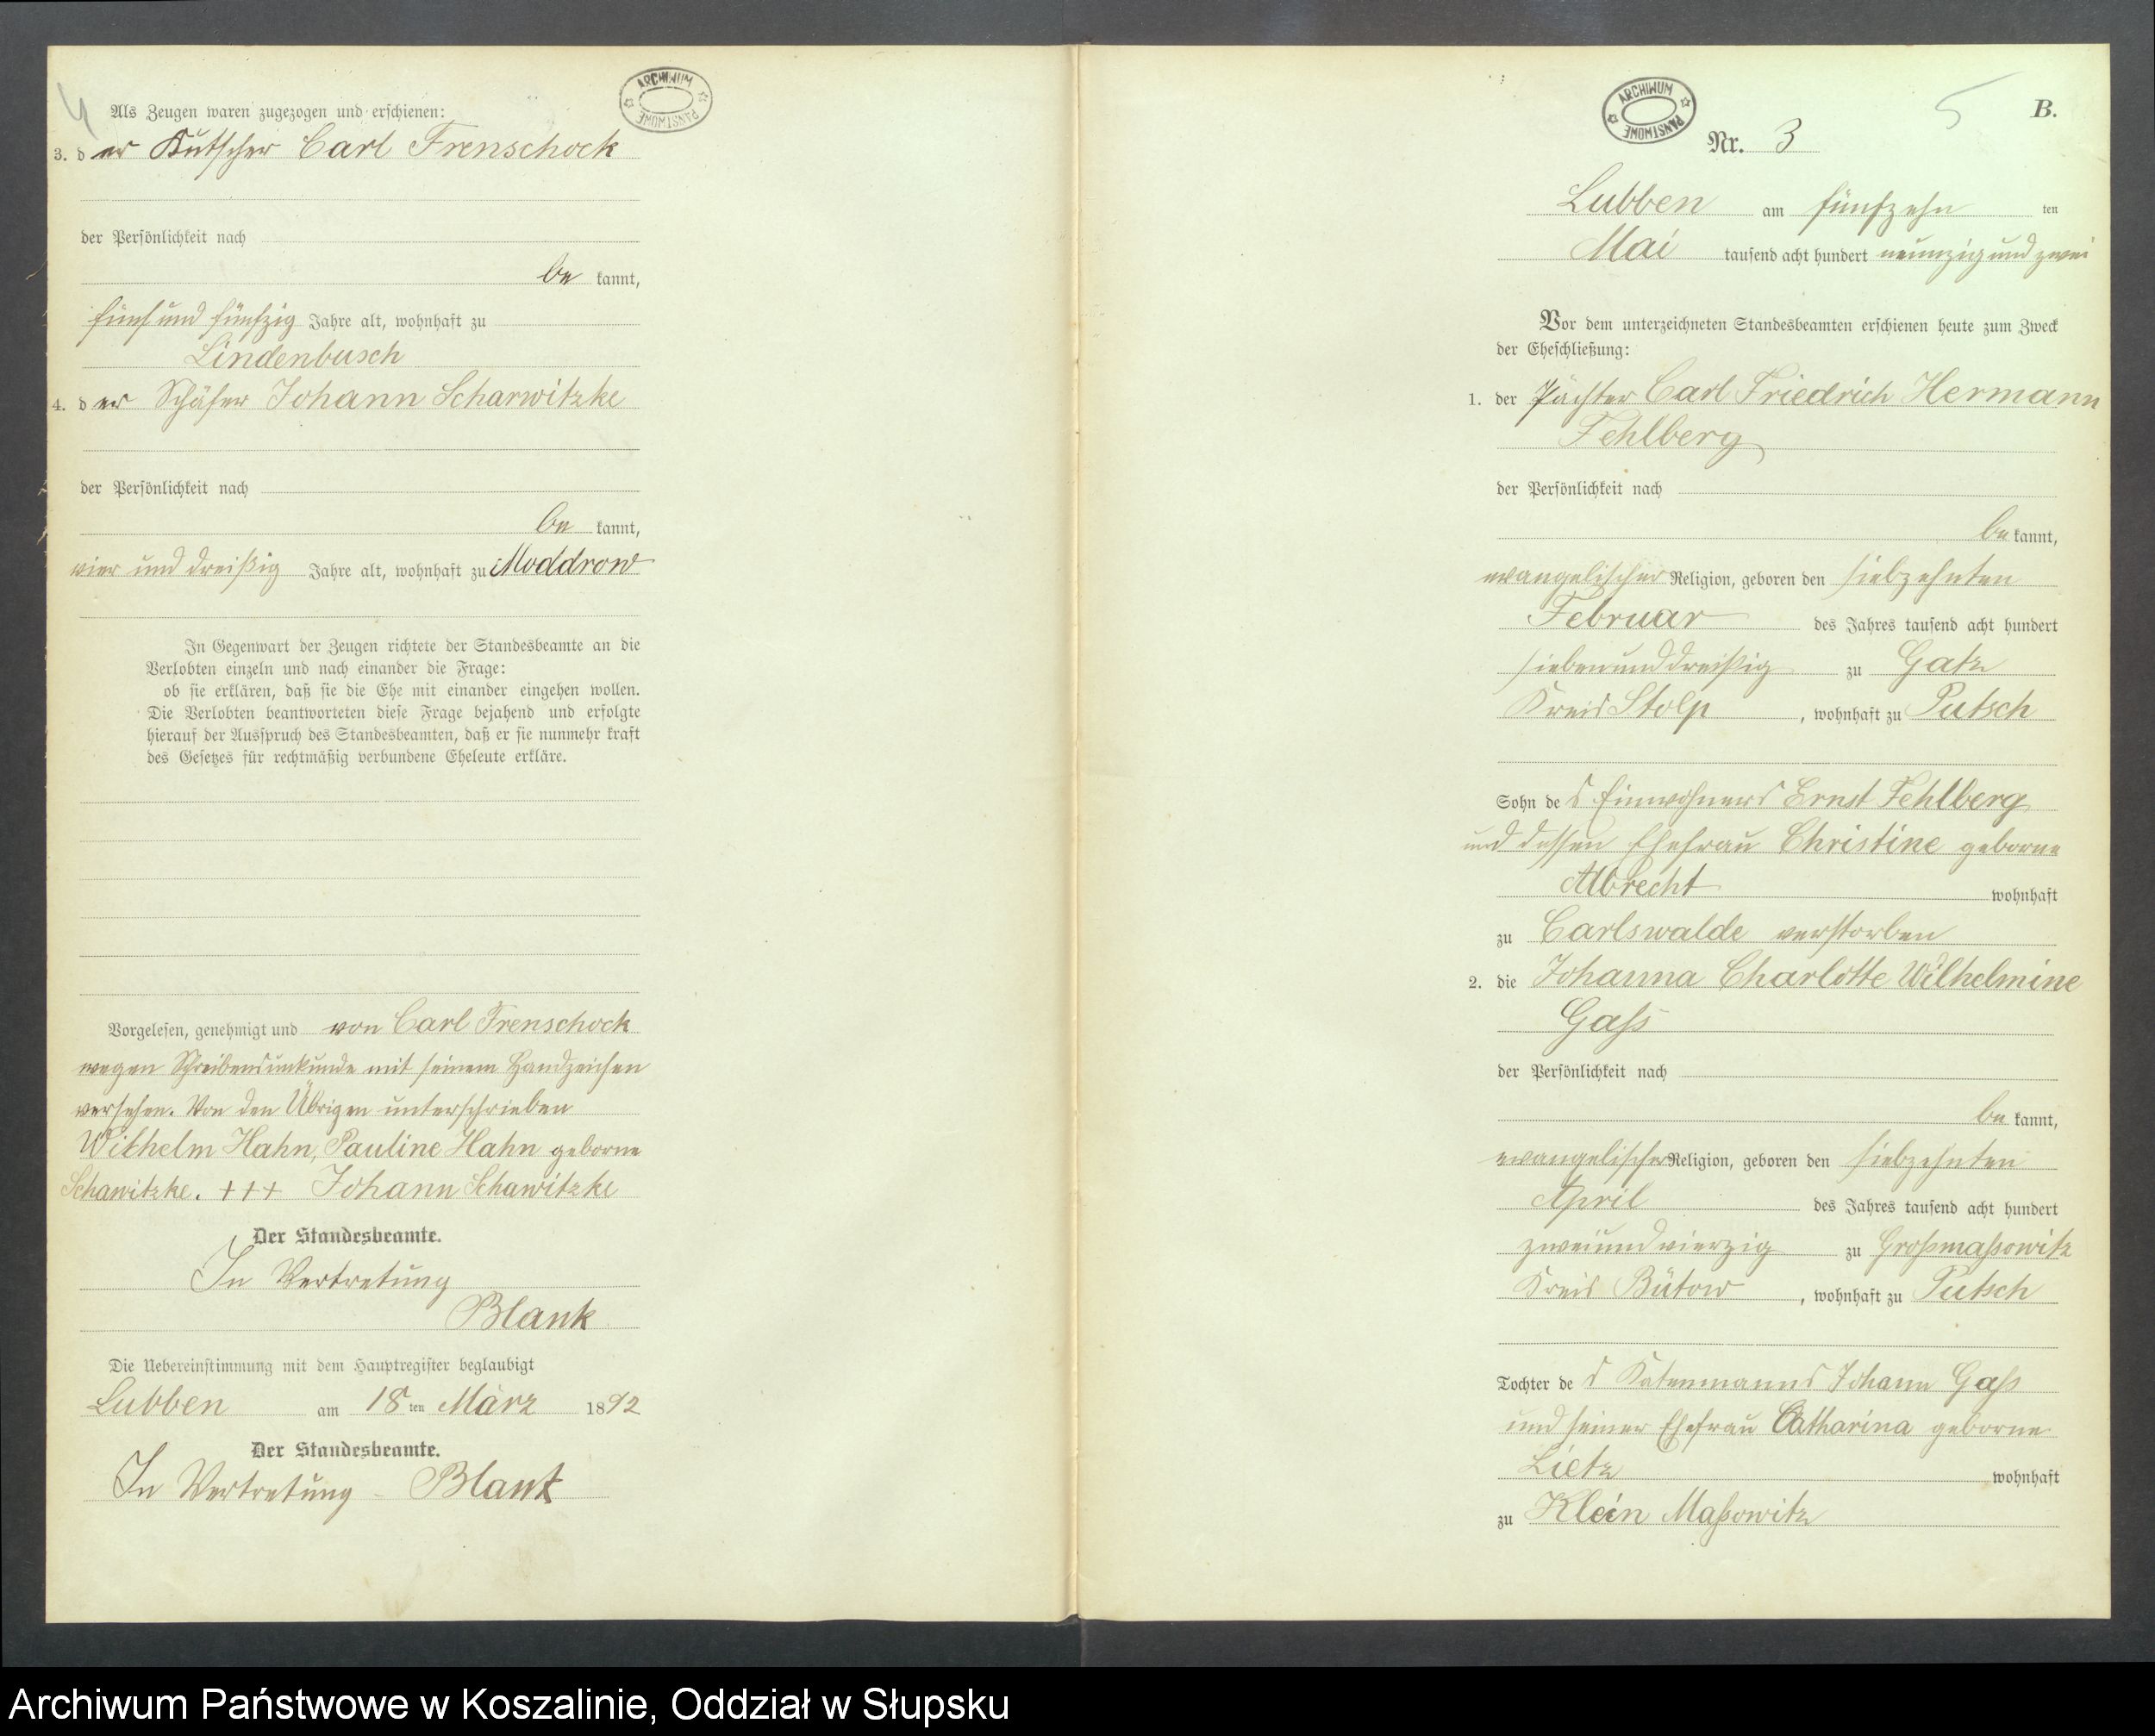 4
Als Zeugen waren zugezogen und erschienen:
3. der Kutscher Carl Frenschock
der Persönlichkeit nach
be kannt,
fünf und fünfzig Jahre alt, wohnhaft zu
Lindenbusch
4. der Schäfer Johann Scharwitzke
der Persönlichkeit nach
be kannt,
vier und dreißig Jahre alt, wohnhaft zu Moddrow
In Gegenwart der Zeugen richtete der Standesbeamte an die
Verlobten einzeln und nach einander die Frage:
ob sie erklären, daß sie die Ehe mit einander eingehen wollen.
Die Verlobten beantworteten diese Frage bejahend und erfolgte
hierauf der Ausspruch des Standesbeamten, daß er sie nunmehr kraft
des Gesetzes für rechtmäßig verbundene Eheleute erkläre.
Vorgelesen, genehmigt und von Carl Frenschock
wegen Schreibensunkunde mit seinem Handzeichen
versehen. Von den Übrigen unterschrieben
Wilhelm Hahn, Pauline Hahn geborne
Schawitzke. +++ Johann Schawitzke
Der Standesbeamte.
In Vertretung
Blank
Die Uebereinstimmung mit dem Hauptregister beglaubigt
Lubben am 18ten März 1892
Der Standesbeamte.
In Vertretung - Blank
ARCHIWUM PAŃSTWOWE
ARCHIWUM PAŃSTWOWE
5 B.
Nr. 3
Lubben am fünfzehn ten
Mai tausend acht hundert neunzig und zwei
Vor dem unterzeichneten Standesbeamten erschienen heute zum Zweck
der Eheschließung:
1. der Pächter Carl Friedrich Hermann
Fehlberg
der Persönlichkeit nach
be kannt,
evangelischer Religion, geboren den siebzehnten
Februar des Jahres tausend acht hundert
siebenunddreißig zu Gatz
Kreis Stolp, wohnhaft zu Putsch
Sohn des Einwohners Ernst Fehlberg
und dessen Ehefrau Christine geborne
Albrecht wohnhaft
zu Carlswalde verstorben
2. die Johanna Charlotte Wilhelmine
Gaß
der Persönlichkeit nach
be kannt,
evangelischer Religion, geboren den siebzehnten
April des Jahres tausend acht hundert
zweiundvierzig zu Großmaßowitz
Kreis Bütow, wohnhaft zu Putsch
Tochter des Katenmanns Johann Gaß
und seiner Ehefrau Catharina geborne
Lietz wohnhaft
zu Klein Maßowitz
Archiwum Państwowe w Koszalinie, Oddział w Słupsku